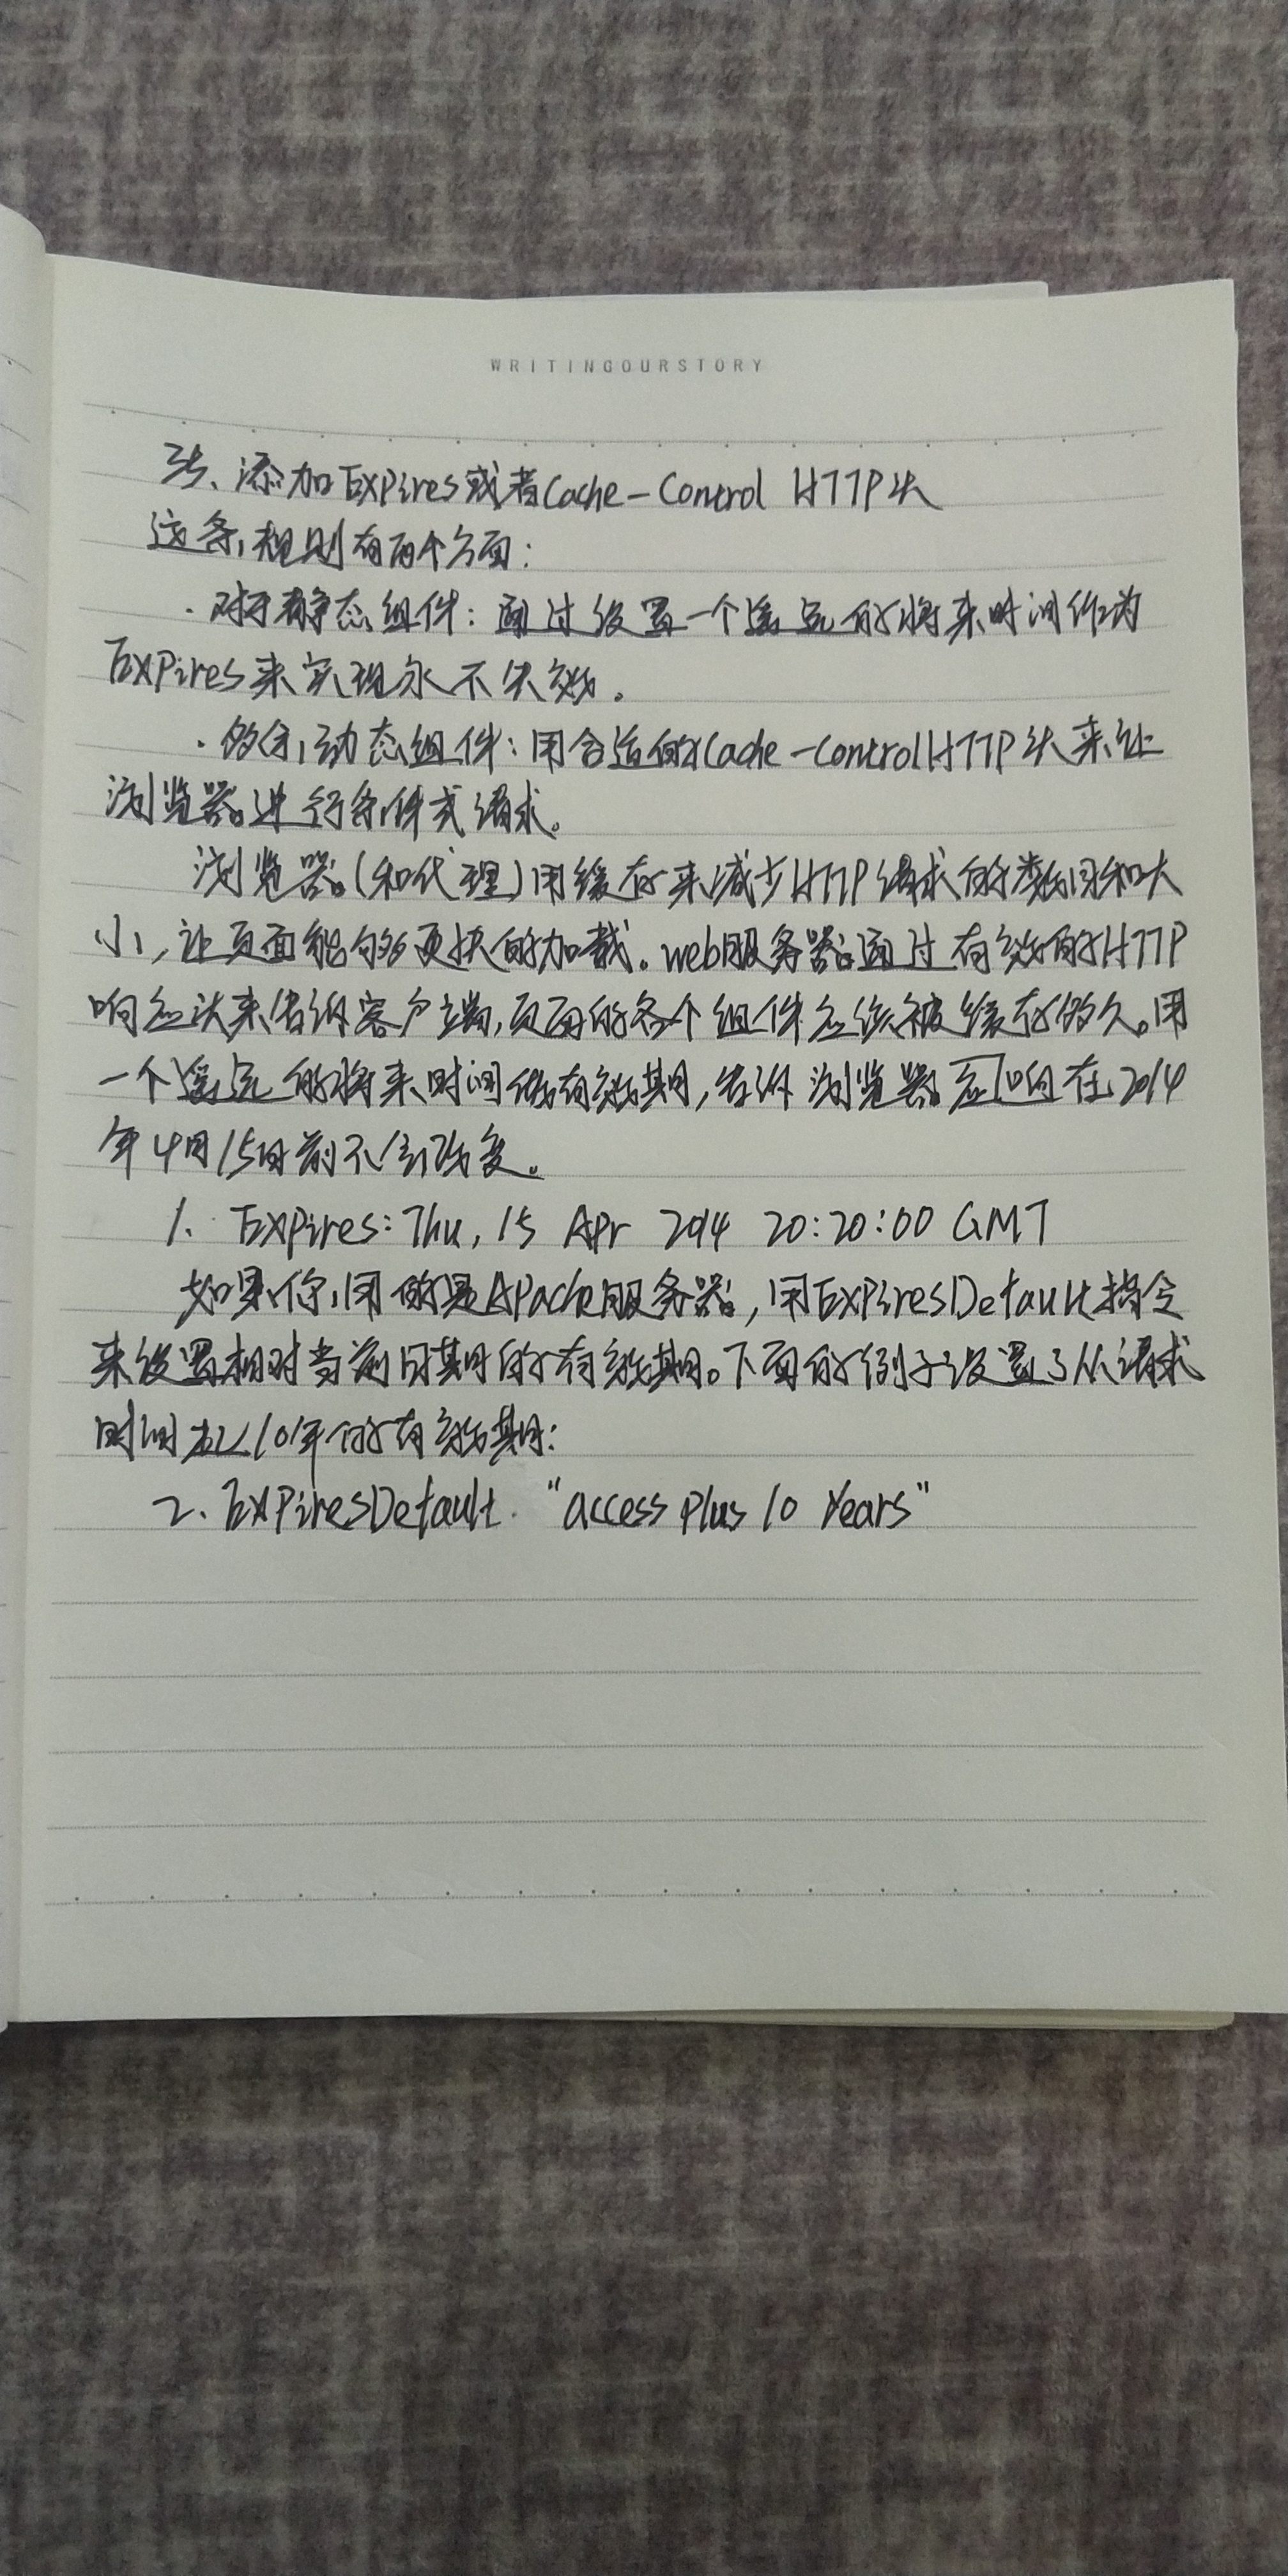 WRITINGOURSTORY
35、添加Expires或者Cache-Control HTTP头
这条规则有两个方面:
·对于静态组件:通过设置一个遥远的将来时间作为
Expires来实现永不失效。
·多余动态组件:用合适的Cache-ControlHTTP头来让
浏览器进行条件式请求。
浏览器(和代理)用缓存来减少HTTP请求的数目和大
小,让页面能够更快的加载。web服务器通过有效的HTTP
响应头来告诉客户端,页面的各个组件应该被缓存多久。用
一个遥远的将来时间做有效期,告诉浏览器应响在2014
年4月15日前不会改变。
1. Expires:Thu, 15 Apr 2014 20:20:00 GMT
如果你用的是Apache服务器,用ExpiresDefault指令
来设置相对当前日期的有效期。下面的例子设置了从请求
时间起10年的有效期:
2. ExpiresDefault "access plus 10 years"